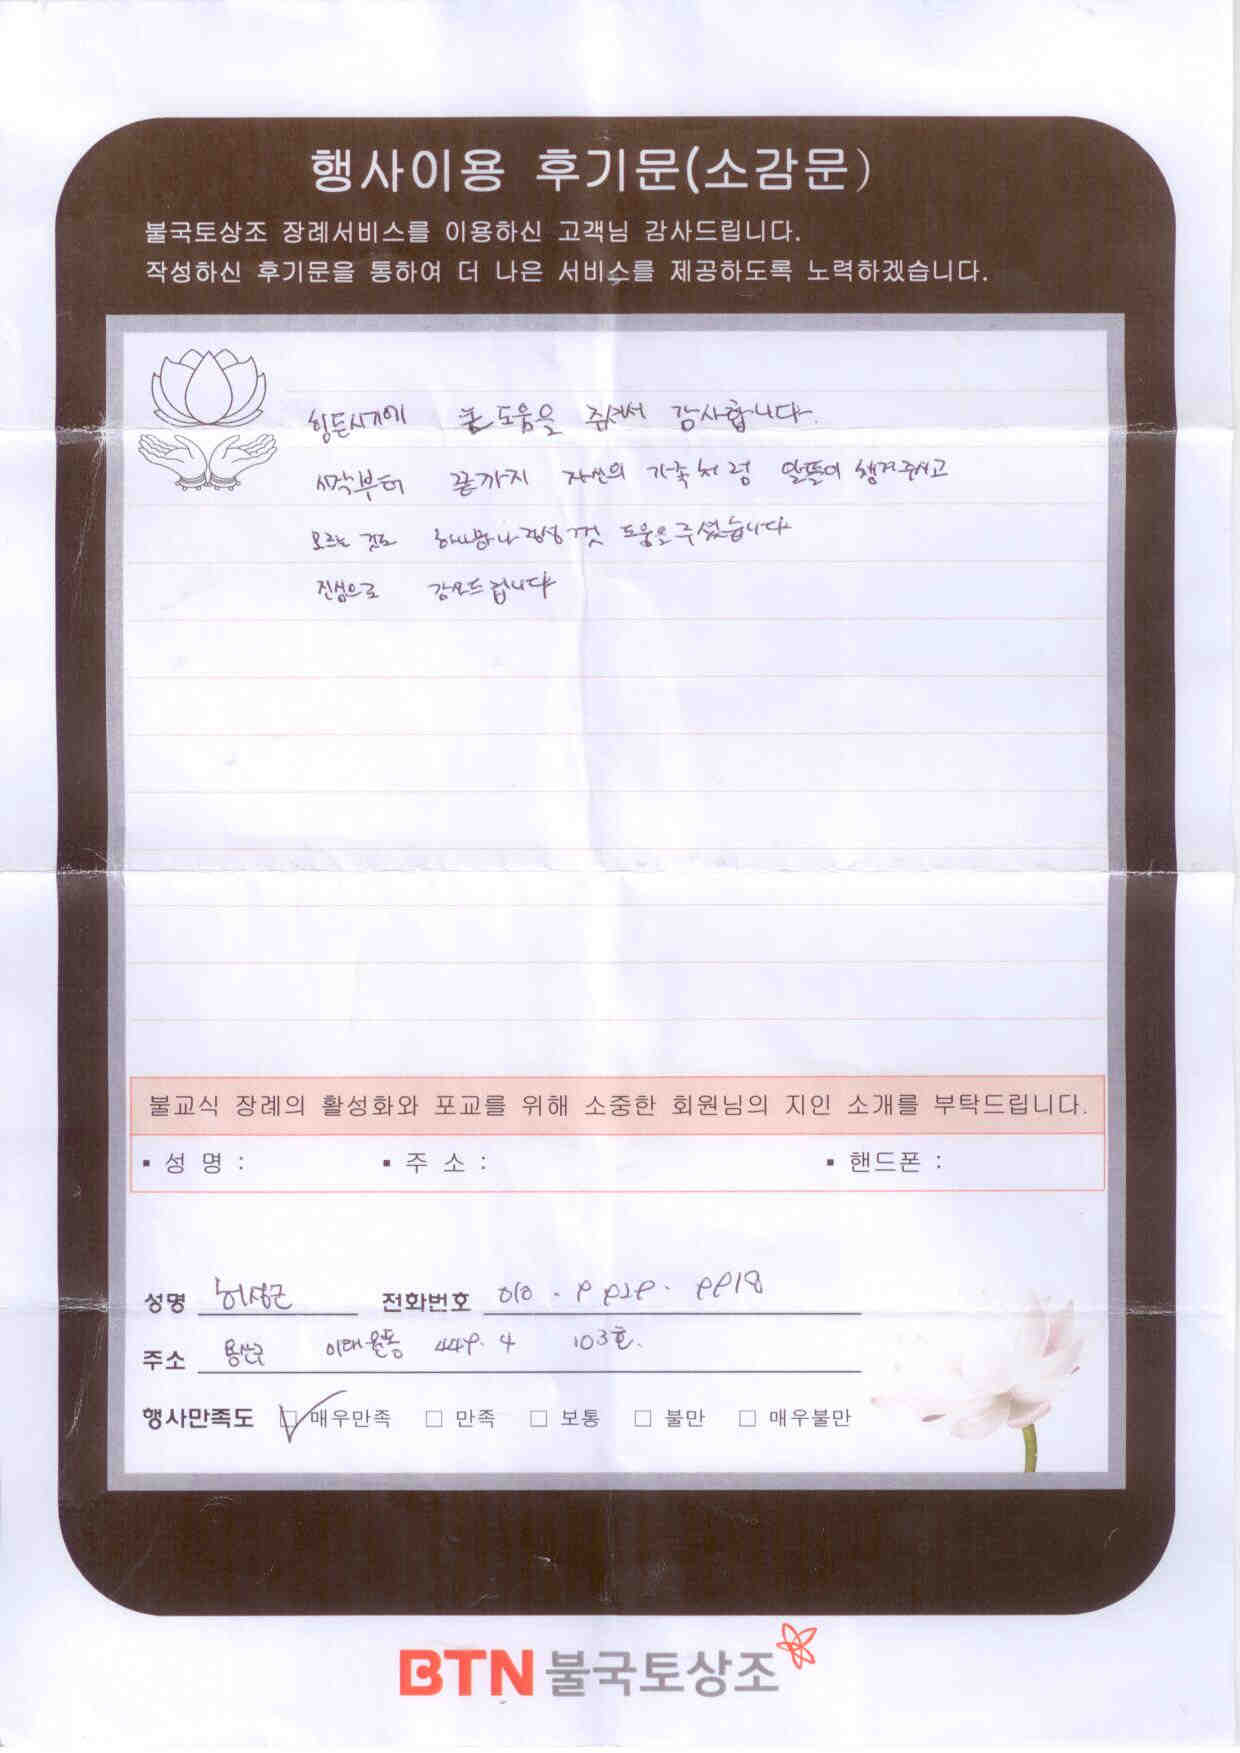 행사이용 후기문(소감문)
불국토상조 장례서비스를 이용하신 고객님 감사드립니다.
작성하신 후기문을 통하여 더 나은 서비스를 제공하도록 노력하겠습니다.
힘든시기에 큰 도움을 주셔서 감사합니다.
시작부터 끝까지 자신의 가족처럼 알뜰이 챙겨주시고
모르는 것도 하나하나 정성껏 도움을 주셨습니다
진심으로 감사드립니다
불교식 장례의 활성화와 포교를 위해 소중한 회원님의 지인 소개를 부탁드립니다.
▪ 성 명 : ▪ 주 소 : ▪ 핸드폰 :
성명 허성근 전화번호 010 .
주소 용산구 이태원동 449. 4 103호.
행사만족도 □ 매우만족 □ 만족 □ 보통 □ 불만 □ 매우불만
BTN 불국토상조